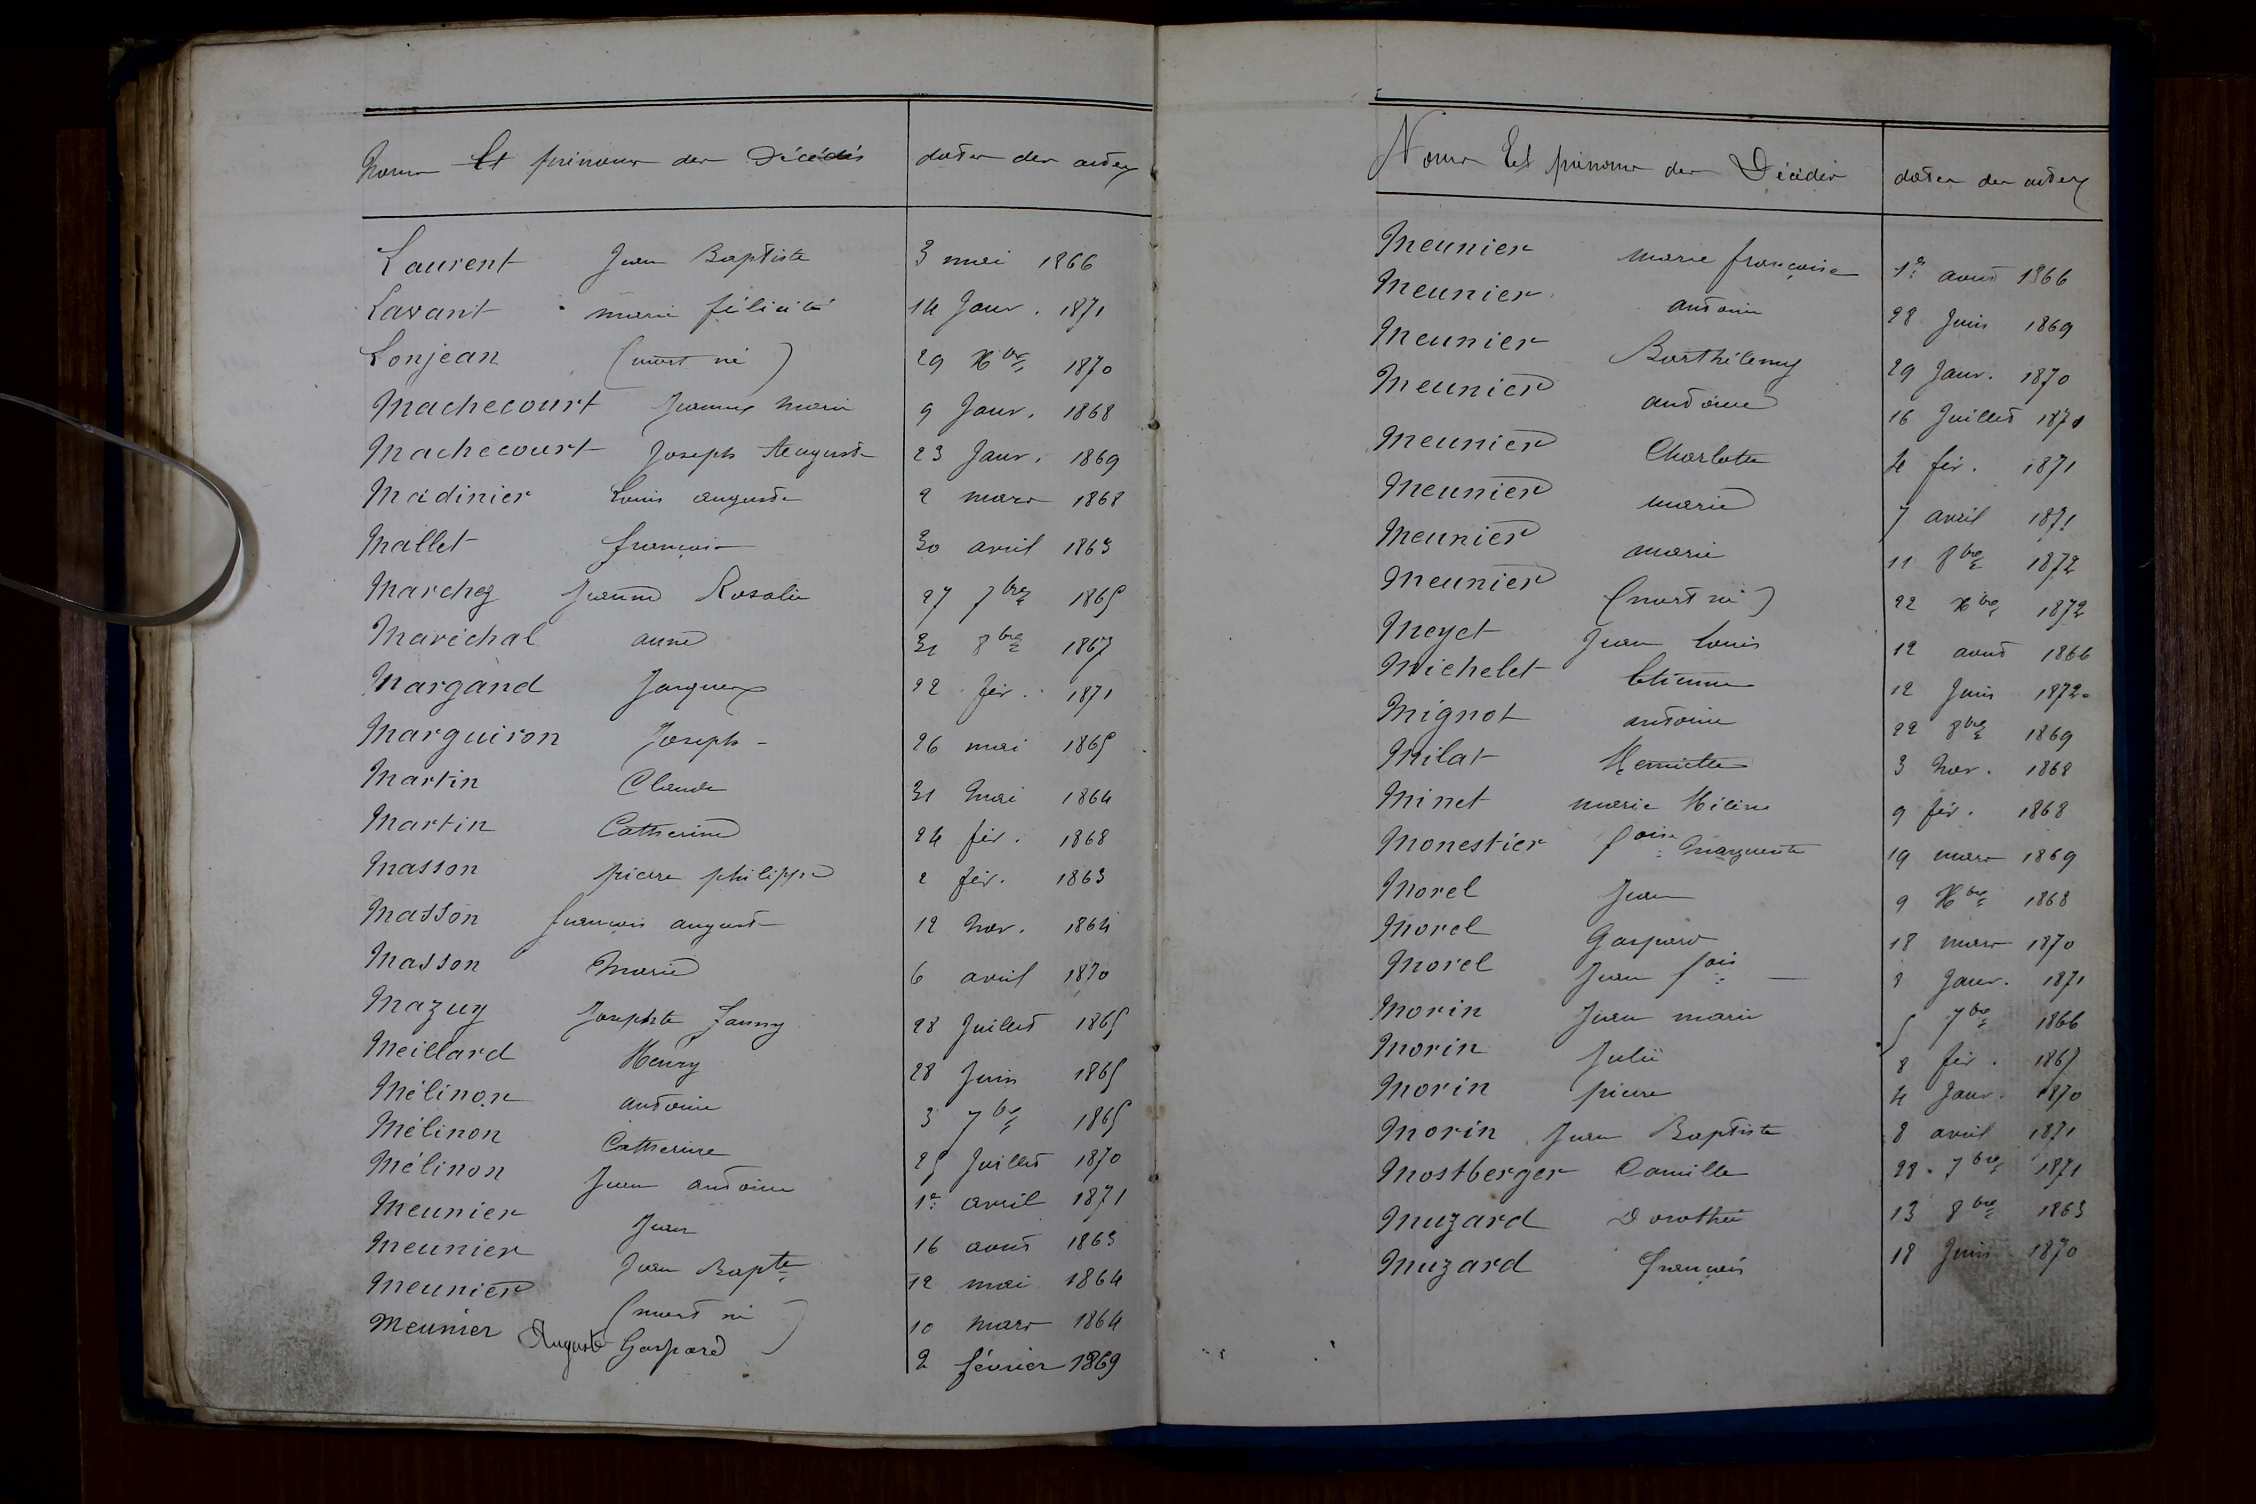 Noms Et prénoms des Décédés dates des actes
Laurent Jean Baptiste 3 mai 1866
Lavant marie félicité 14 Janv. 1871
Lonjean (mort né) 29 Xbre 1870
Machecourt Jeanne Marie 9 Janv. 1868
Machecourt Joseph August 23 Janv. 1869
Madinier Louis auguste 2 mars 1868
Mallet françois 30 avril 1863
Marchez Jeanne Rosalie 27 7bre 1865
Maréchal anne 31 8bre 1867
Margand Jacques 22 fév. 1871
Marguiron Joseph 26 mai 1865
Martin Claude 31 Mai 1864
Martin Catherine 24 fév. 1868
Masson pierre philippe 2 fév. 1863
Masson françois august 12 Nov. 1864
Masson Marie 6 avril 1870
Mazuy Josephte Fanny 28 Juillet 1865
Meillard Henry 28 Juin 1865
Mélinon antoine 3 7bre 1865
Mélinon Catherine 25 Juillet 1870
Mélinon Jean antoine 1er avril 1871
Meunier Jean 16 aout 1863
Meunier Jean Bapte 12 mai 1864
Meunier (mort né) 10 mars 1864
Meunier Auguste Gaspard 2 février 1869
Noms Et prénoms des Décédés dates des actes
Meunier marie françoise 1er aout 1866
Meunier antoine 28 Juin 1869
Meunier Barthélemy 29 Janv. 1870
Meunier antoine 16 Juillet 1870
Meunier Charlotte 4 fév. 1871
Meunier marie 7 avril 1871
Meunier marie 11 8bre 1872
Meunier (mort né) 22 Xbre 1872
Meyet Jean Louis 12 aout 1866
Michelet Etienne 12 Juin 1872
Mignot antoine 22 8bre 1869
Milat Henriette 3 Nov. 1868
Minet marie Hélène 9 fév. 1868
Monestier foise Marguerite 19 mars 1869
Morel Jean 9 Xbre 1868
Morel Gaspard 18 mars 1870
Morel Jean fois 8 Janv. 1871
Morin Jean marie 5 7bre 1866
Morin Julie 8 fév. 1867
Morin pierre 4 Janv. 1870
Morin Jean Baptiste 8 avril 1871
Mostberger Camille 28 7bre 1871
Muzard Dorothée 13 8bre 1863
Muzard françois 18 Juin 1870